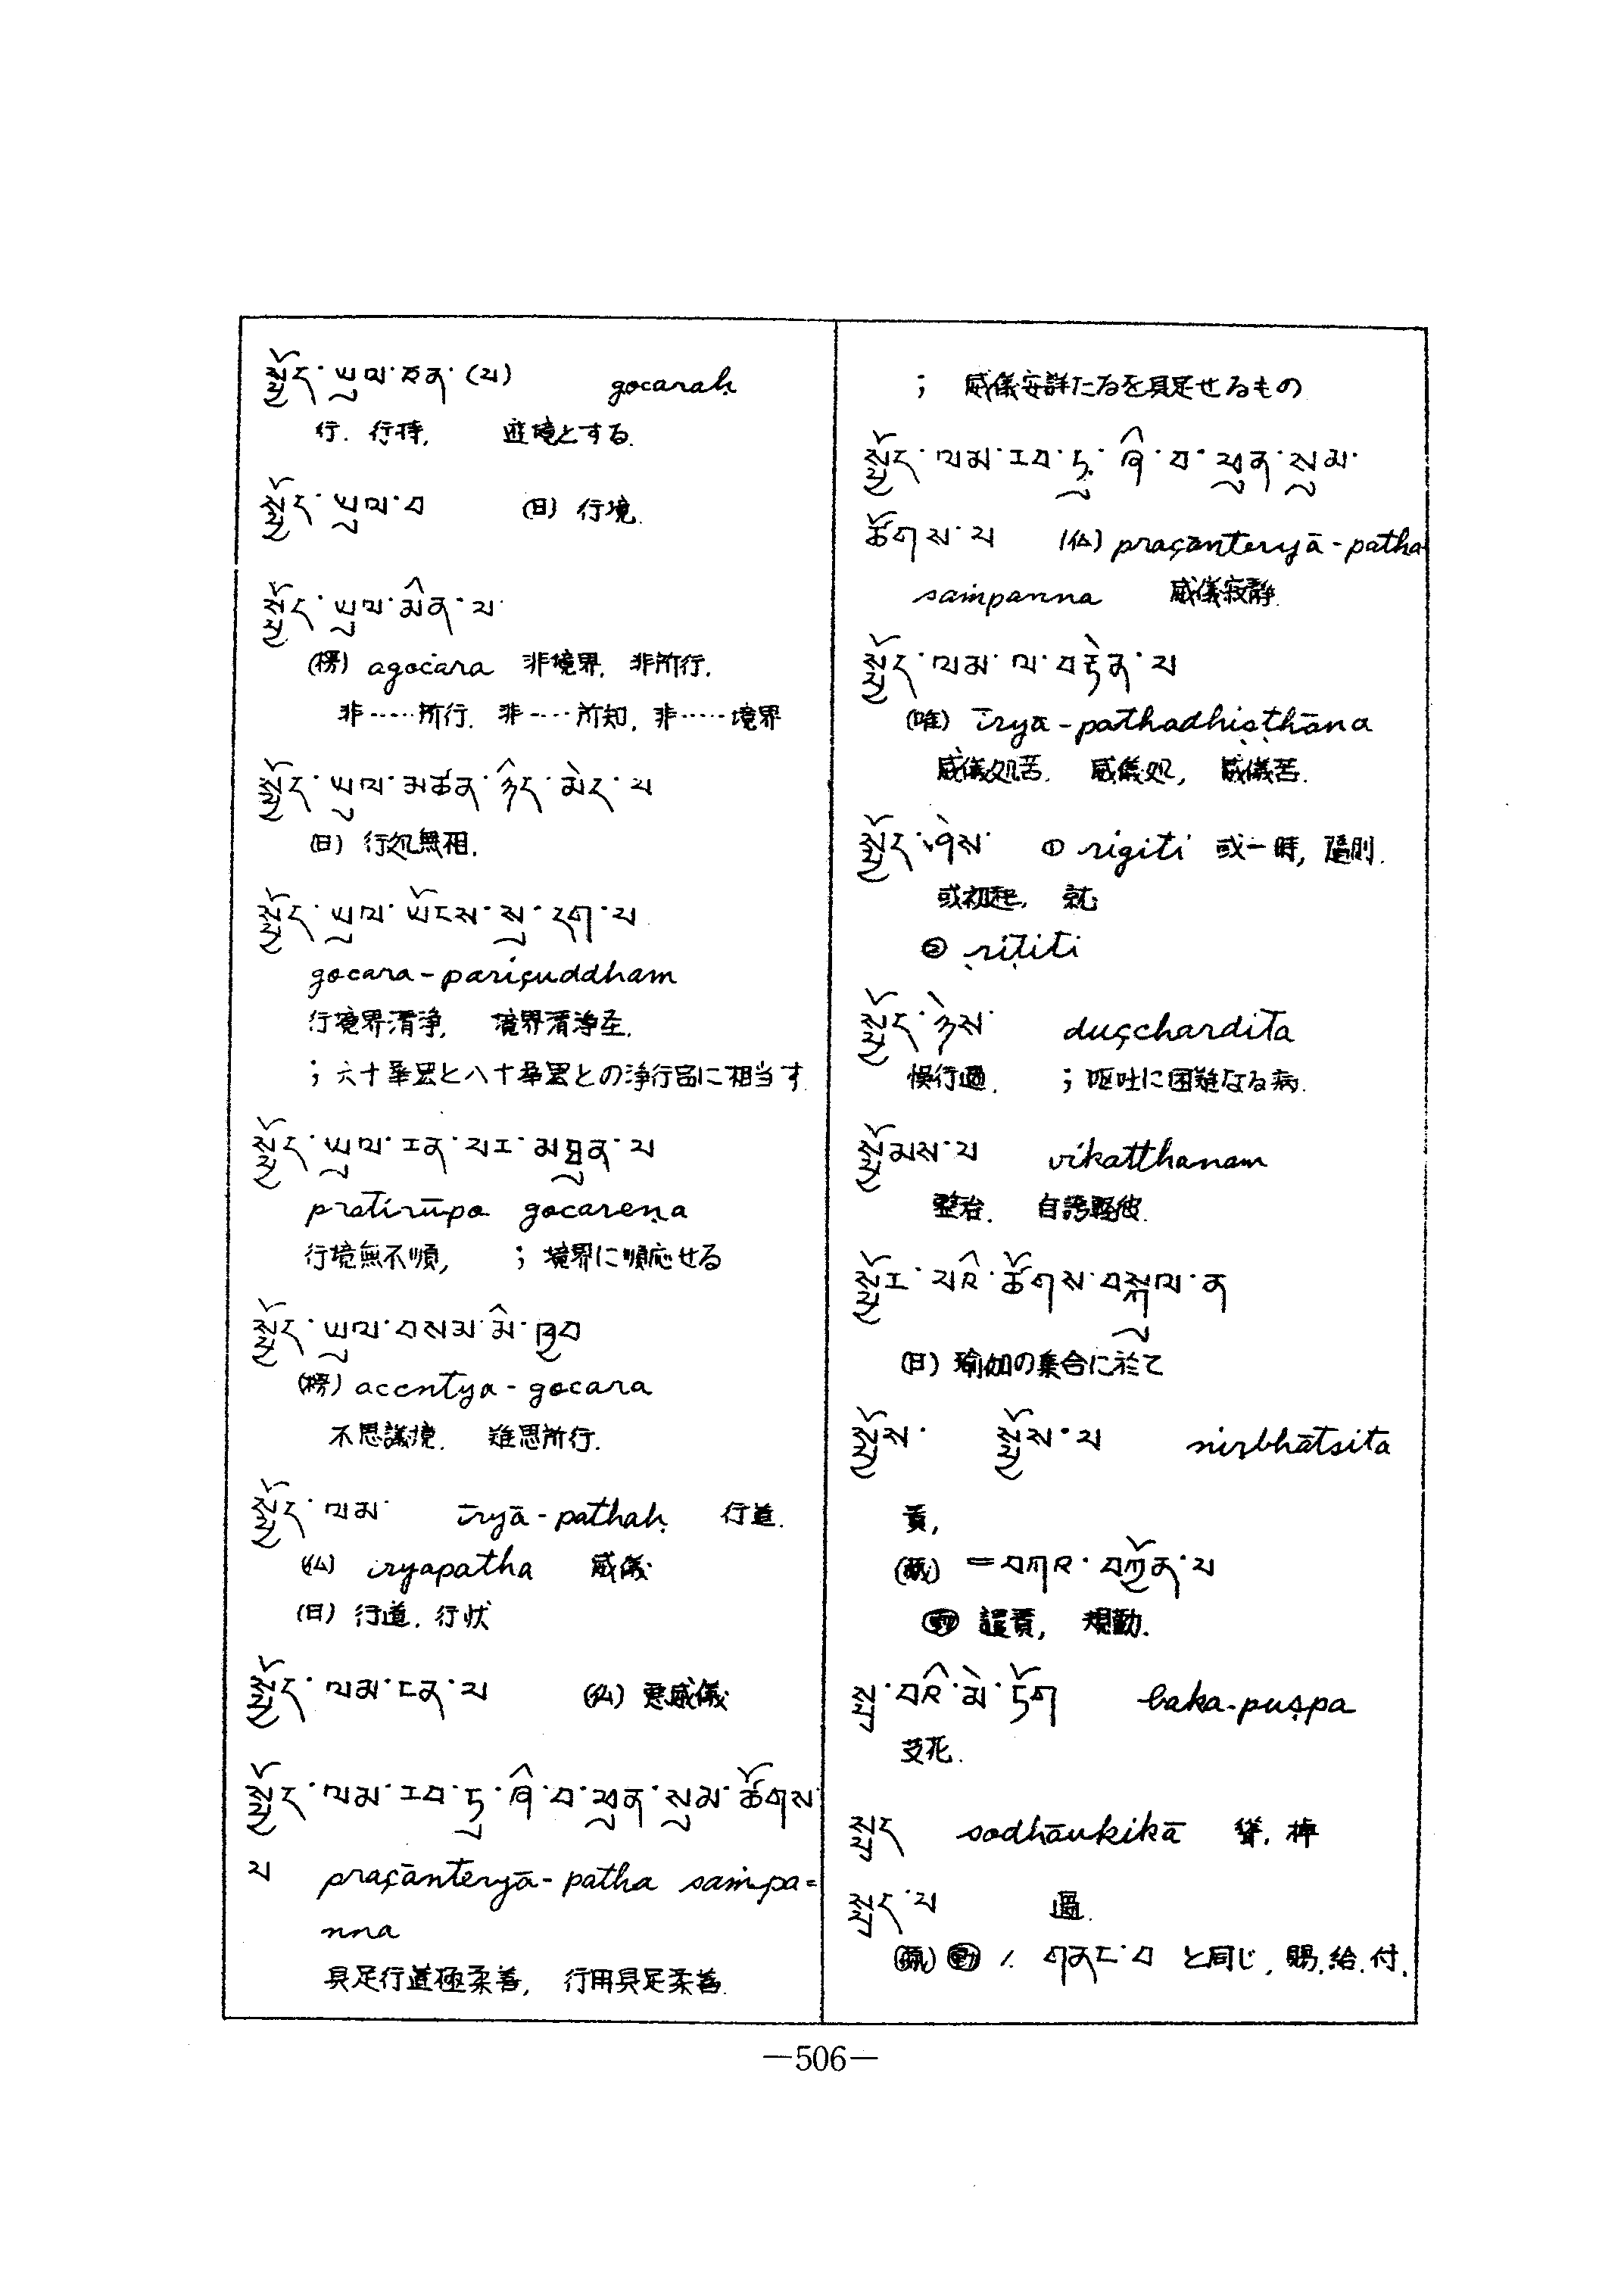 སྤྱོད་ཡུལ་ཅན་(པ) gocaraḥ
行. 行持, 遊境とする.
སྤྱོད་ཡུལ་བ (日) 行境.
སྤྱོད་ཡུལ་མིན་པ་
(楞) agocara 非境界, 非所行,
非……所行. 非……所知, 非……境界
སྤྱོད་ཡུལ་མཚན་ཉིད་མེད་པ
(日) 行処無相.
སྤྱོད་ཡུལ་ཡོངས་སུ་དག་པ
gocara-pariçuddham
行境界清浄, 境界清浄在.
; 六十華厳と八十華厳との浄行品に相当す
སྤྱོད་ཡུལ་ངན་པང་མཐུན་པ
pratirūpa gocareṇa
行境無不順, ; 境界に順応せる
སྤྱོད་ཡུལ་བསམ་མི་ཁྱབ
(楞) accntya-gocara
不思議境. 難思所行.
སྤྱོད་ལམ་ īryā-pathaḥ 行道.
(仏) iryapatha 威儀
(日) 行道. 行状
སྤྱོད་ལམ་ངན་པ (仏) 悪威儀
སྤྱོད་ལམ་རབ་ཏུ་ཞི་བ་ཕུན་སུམ་ཚོགས་
པ praçānteryā-patha saṁpa=
nna
具足行道極柔善, 行用具足柔善.
; 威儀安詳たるを具足せるもの
སྤྱོད་ལམ་རབ་ཏུ་ཞི་བ་ཕུན་སུམ་
ཚོགས་པ (仏) praçānteryā-patha
saṁpanna 威儀寂静.
སྤྱོད་ལམ་ལ་བརྟེན་པ
(唯) īryā-pathadhiṣṭhāna
威儀処苦. 威儀処, 威儀苦.
སྤྱོད་ཤེས་ ① rigiti 或一時, 随則.
或初起, 就
② ṛiṭiti
སྤྱོད་ཉེས་ duçchardita
悞行過. ; 嘔吐に困難なる病.
སྤྱོམས་པ vikatthanam
整治. 自誇軽彼.
སྤྱོར་པའི་ཚོགས་བསྐུལ་ན
(日) 瑜伽の集合に於て
སྤྱོས་ སྤྱོས་པ nirbhātsita
責,
(蔵) =བཀའ་བཀྱོན་པ
譴責, 規勸.
སྤྲ་བའི་མེ་ཏོག baka-puṣpa
艾花.
སྤྲད sodhāukikā
སྤྲད་པ 過.
1. གནང་བ と同じ, 賜.給.付.
—506—